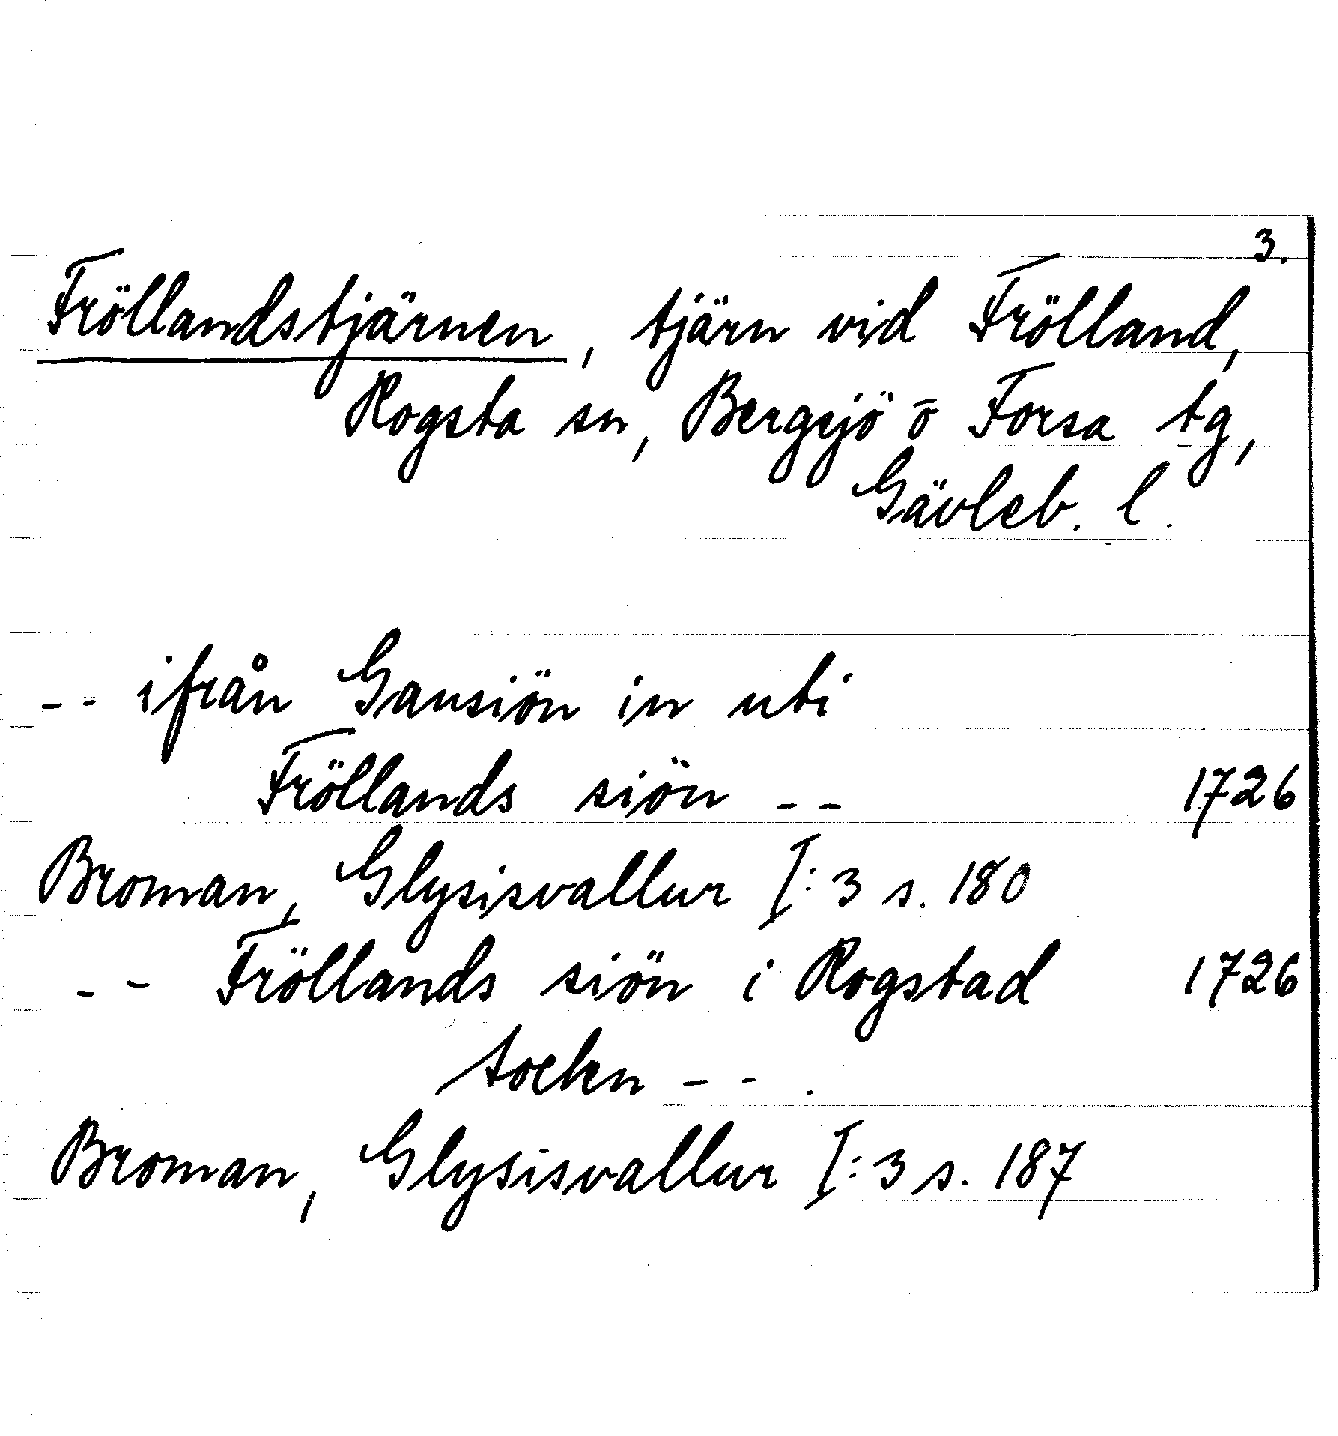 3.
Fröllandstjärnen, tjärn vid Frölland,
Rogsta sn, Bergsjö o Forsa tg,
Gävleb. l.
-- ifrån Gausiön in uti
Fröllands siön -- 1726
Broman, Glysisvallur I:3 s. 180
-- Fröllands siön i Rogstad 1726
sochn -- .
Broman, Glysisvallur I:3 s. 187